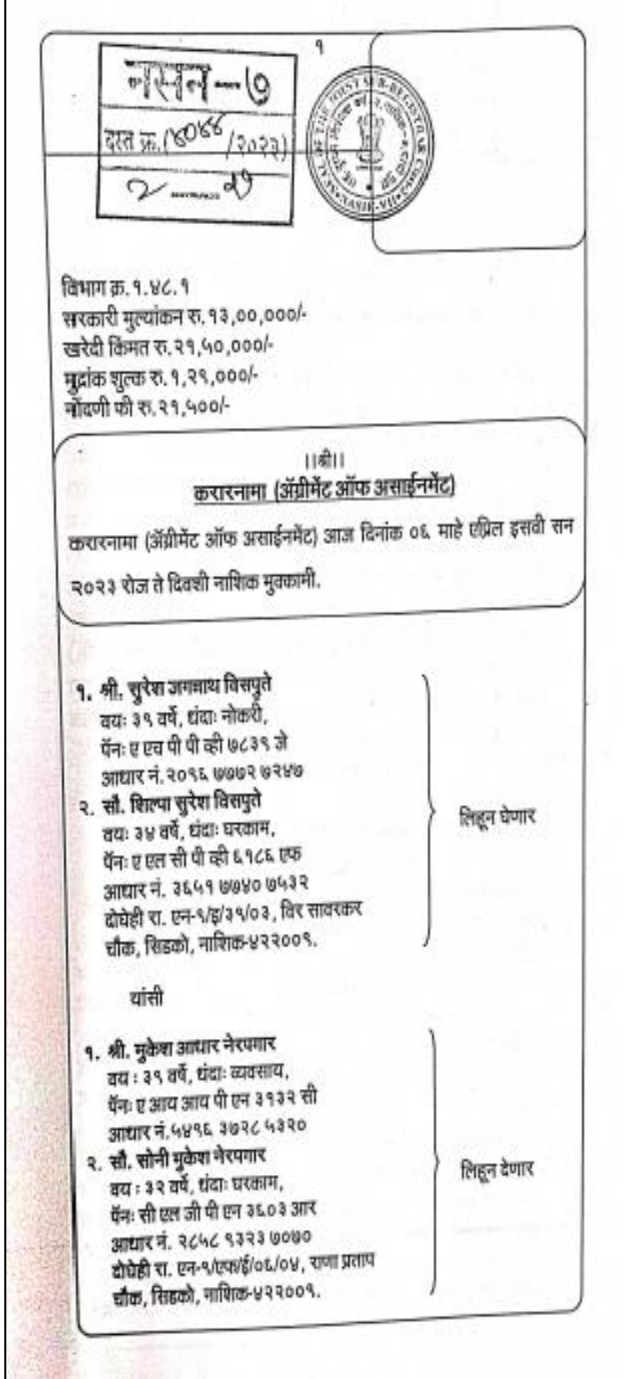 १
नसन-७
दस्त क्र.(४०४४ /२०२३)
२ २७
SEAL OF THE JOINT SUB-REGISTRAR NASIK-VII
विभाग क्र.१.४८.१
सरकारी मुल्यांकन रु.१३,००,०००/-
खरेदी किंमत रु.२१,५०,०००/-
मुद्रांक शुल्क रु.१,२९,०००/-
नोंदणी फी रु.२१,५००/-
||श्री||
करारनामा (ॲग्रीमेंट ऑफ असाईनमेंट)
करारनामा (ॲग्रीमेंट ऑफ असाईनमेंट) आज दिनांक ०६ माहे एप्रिल इसवी सन
२०२३ रोज ते दिवशी नाशिक मुक्कामी.
१. श्री. सुरेश जगन्नाथ विसपुते
वयः ३९ वर्षे, धंदाः नोकरी,
पॅनः ए एच पी पी व्ही ७८३९ जे
आधार नं.२०९६ ७७७२ ७२४७
२. सौ. शिल्पा सुरेश विसपुते
वयः ३४ वर्षे, धंदाः घरकाम,
पॅनः ए एल सी पी व्ही ६१८६ एफ
आधार नं. ३६५१ ७७४० ७५३२
दोघेही रा. एन-९/इ/३१/०३, विर सावरकर
चौक, सिडको, नाशिक-४२२००९.
लिहून घेणार
यांसी
१. श्री. मुकेश आधार नेरपगार
वय : ३९ वर्षे, धंदाः व्यवसाय,
पॅनः ए आय आय पी एन ३१३२ सी
आधार नं.५४९६ ३७२८ ५३२०
२. सौ. सोनी मुकेश नेरपगार
वय : ३२ वर्षे, धंदाः घरकाम,
पॅनः सी एल जी पी एन ३६०३ आर
आधार नं. २८५८ ९३२३ ७०७०
दोघेही रा. एन-९/एफ/ई/०६/०४, राणा प्रताप
चौक, सिडको, नाशिक-४२२००९.
लिहून देणार